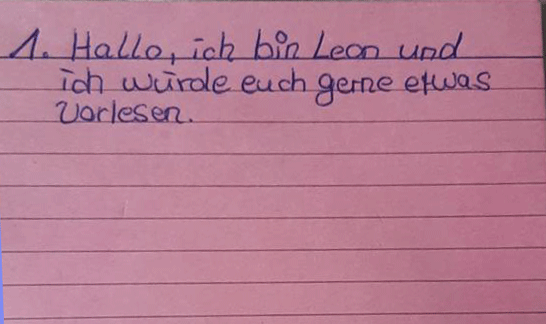 1. Hallo, ich bin Leon und
ich würde euch gerne etwas
vorlesen.